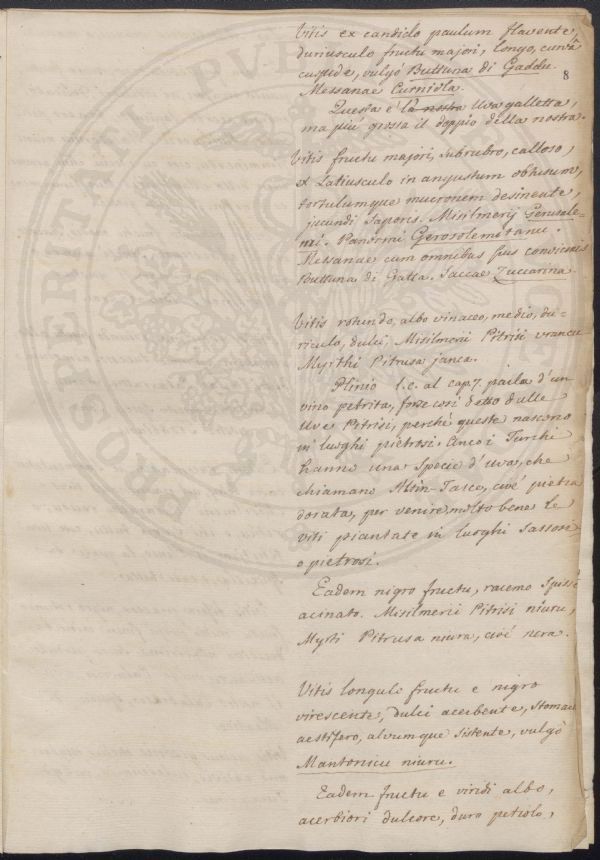 Vitis ex candido paulum flavente,
duriusculo fructu majori, longo, curvâ
cuspide, vulgò Buttuna di Gaddu.
8
Messanae Curniola.
Questa è la nostra Uva galletta,
ma più grossa il doppio della nostra.
Vitis fructu majori, subrubro, calloso,
ex Latiusculo in angustum obtusum,
tortulumque mucronem desinente,
jucundi saporis. Misilmerij Gerusale-
mi. Panormi Gerosolemitanu.
Messanae cum omnibus sus convicinis
Buttuna di Gatta. Saccae Zuccarina.
Vitis rotundo, albo vinaceo, medio, du-
riculo, dulci, Misilmerii Pitrisi vrancu
Myrthi Pitrusa janca.
Plinio l.c. al cap. 7. parla d'un
vino petrita, forse così detto dalle
Uve Pitrisi, perchè queste nascono
in luoghi pietrosi. Anco i Turchi
hanno una specie d'uva, che
chiamano Altin-Tasce, cioé pietra
dorata, per venire molto bene le
viti piantate in luoghi sassosi
o pietrosi.
Eadem nigro fructu, racemo spissè
acinato. Misilmerii Pitrisi niuru,
Myrti Pitrusa niura, cioé nera.
Vitis longulo fructu e nigro
virescente, dulci acerbente, stomac
aestifero, alvumque sistente, vulgò
Mantonicu niuru.
Eadem fructu e viridi albo,
acerbiori dulcore, duro petiolo,